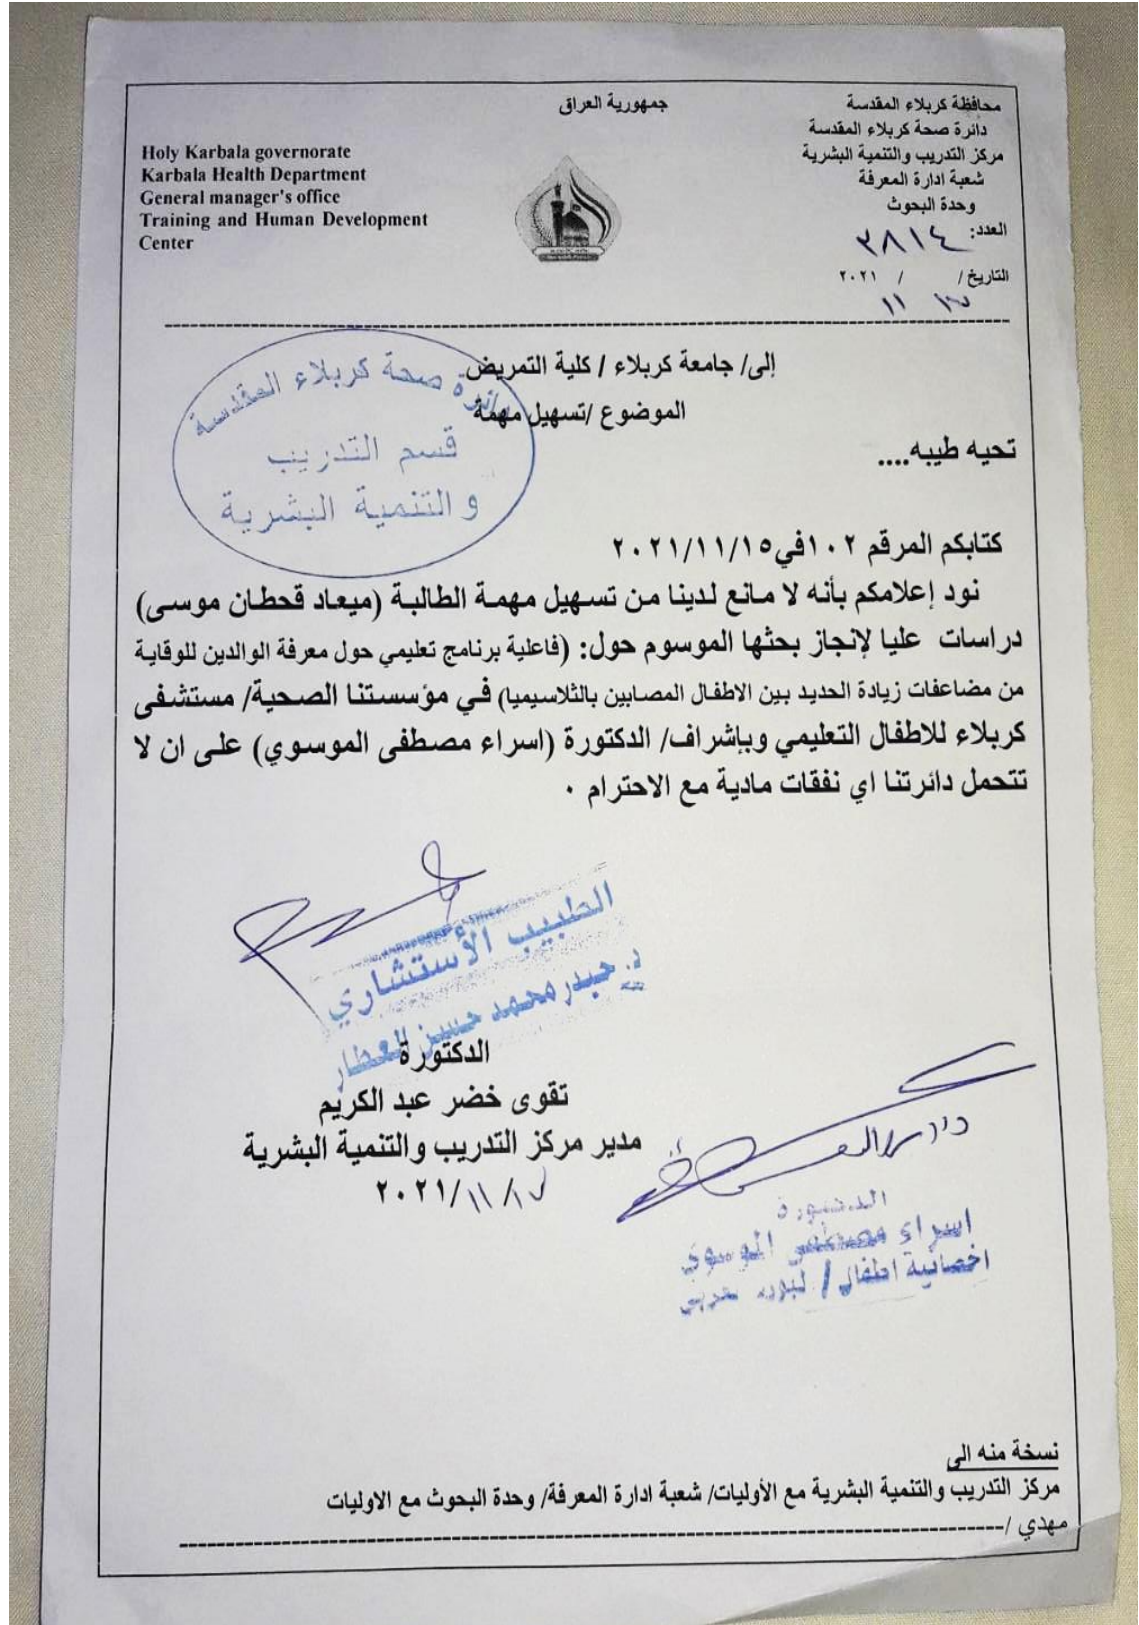 جمهورية العراق
محافظة كربلاء المقدسة
دائرة صحة كربلاء المقدسة
مركز التدريب والتنمية البشرية
شعبة ادارة المعرفة
وحدة البحوث
العدد: ٣٨١٤
التاريخ / / ٢٠٢١
١١
Holy Karbala governorate
Karbala Health Department
General manager's office
Training and Human Development
Center
إلى/ جامعة كربلاء / كلية التمريض
الموضوع /تسهيل مهمة
دائرة صحة كربلاء المقدسة
قسم التدريب
والتنمية البشرية
تحيه طيبه....
كتابكم المرقم ١٠٢في٢٠٢١/١١/١٥
نود إعلامكم بأنه لا مانع لدينا من تسهيل مهمة الطالبة (ميعاد قحطان موسى)
دراسات عليا لإنجاز بحثها الموسوم حول: (فاعلية برنامج تعليمي حول معرفة الوالدين للوقاية
من مضاعفات زيادة الحديد بين الاطفال المصابين بالثلاسيميا) في مؤسستنا الصحية/ مستشفى
كربلاء للاطفال التعليمي وبإشراف/ الدكتورة (اسراء مصطفى الموسوي) على ان لا
تتحمل دائرتنا اي نفقات مادية مع الاحترام ٠
الطبيب الأستشاري
د. حيدر محمد حسن العطار
الدكتورة
تقوى خضر عبد الكريم
مدير مركز التدريب والتنمية البشرية
٢٠٢١/١١/١٧
الدكتورة
اسراء مصطفى الموسوي
اخصائية اطفال /
نسخة منه الى
مركز التدريب والتنمية البشرية مع الأوليات/ شعبة ادارة المعرفة/ وحدة البحوث مع الاوليات
مهدي /